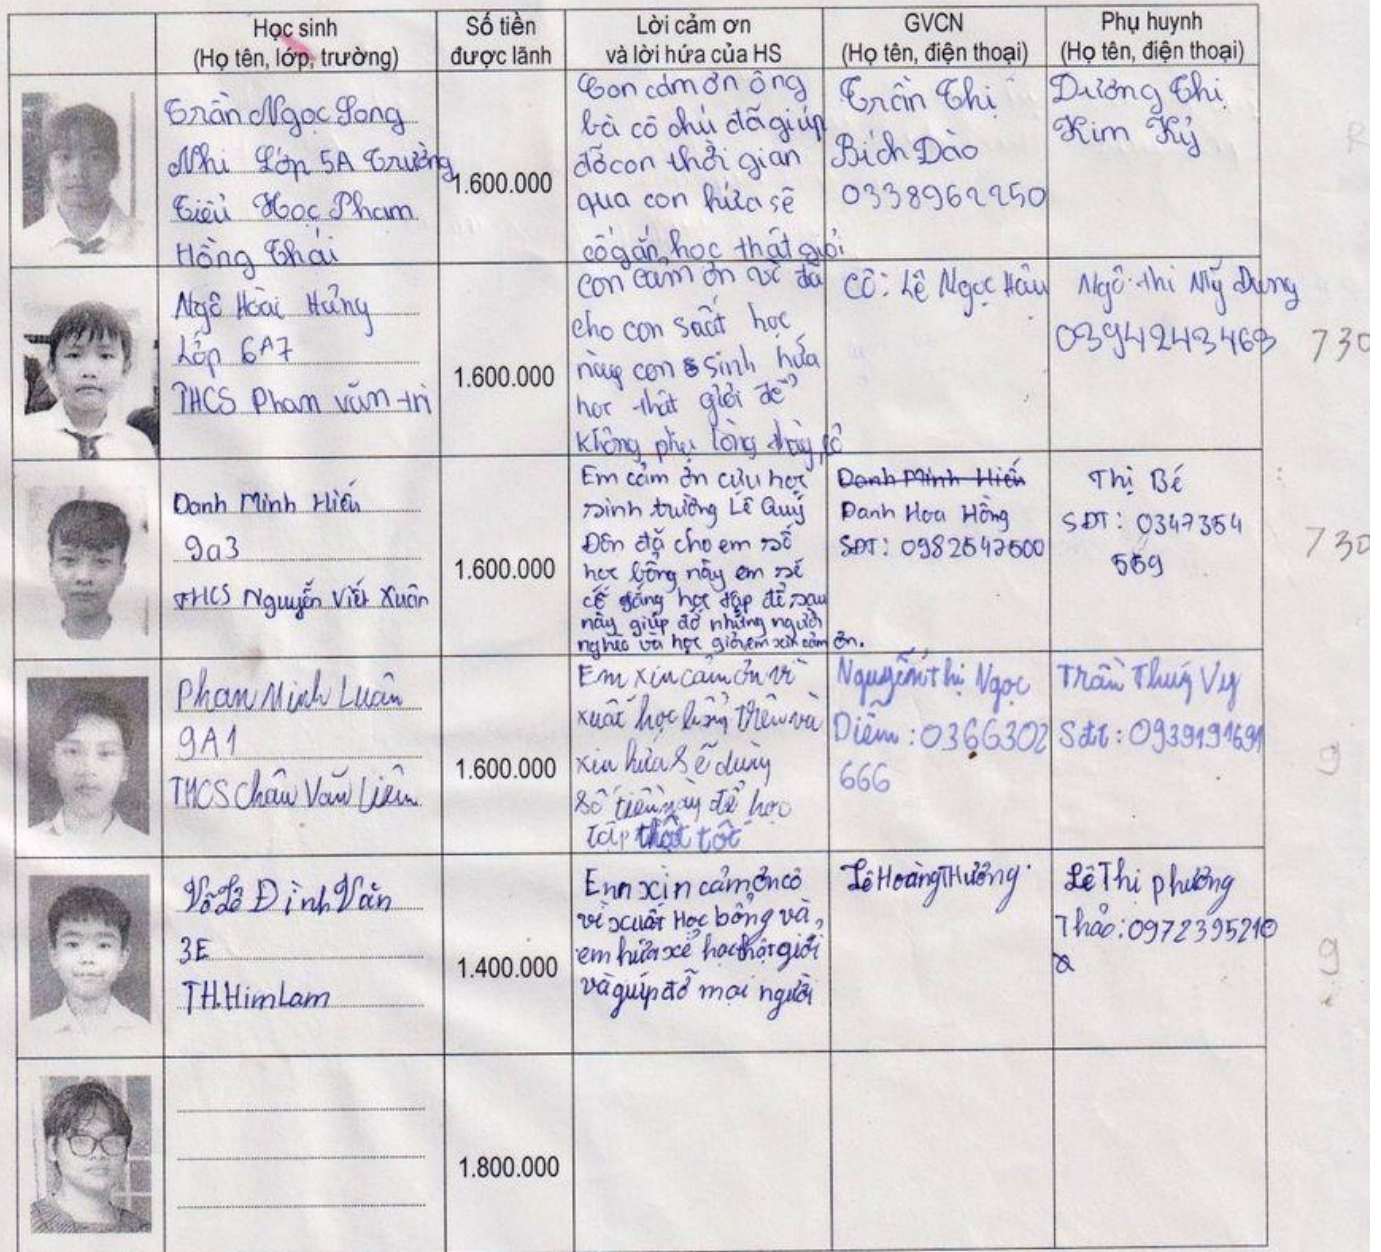 Học sinh
(Họ tên, lớp, trường)
Số tiền
được lãnh
Lời cảm ơn
và lời hứa của HS
GVCN
(Họ tên, điện thoại)
Phụ huynh
(Họ tên, điện thoại)
Trần Ngọc Song
Nhi Lớp 5A Trường
Tiểu Học Phạm
Hồng Thái
1.600.000
Con cảm ơn ông
bà cô chú đã giúp
đỡ con thời gian
qua con hứa sẽ
cố gắn học thật giỏi
Trần Thị
Bích Đào
0338962250
Dương Thị
Kim Kỷ
Ngô Hoài Hưng
Lớp 6A7
THCS Phan văn trị
1.600.000
con cảm ơn vì đã
cho con suất học
này con sinh hứa
học thật giỏi để
không phụ lòng thầy cô
Cô: Lê Ngọc Hâu
Ngô thi Mỹ Dung
0394243463
730
Danh Minh Hiếu
9a3
THCS Nguyễn Viết Xuân
1.600.000
Em cảm ơn cựu học
sinh trường Lê Quý
Đôn đã cho em số
học bỗng này em sẽ
cố gắng học tập để sau
này giúp đỡ những người
nghèo và học giỏi em xin cảm ơn.
Danh Minh Hiếu
Danh Hoa Hồng
SĐT: 0982547500
Thị Bé
SĐT: 0347354
559
730
Phan Minh Luân
9A1
THCS Châu Văn Liêm
1.600.000
Em xin cảm ơn vì
xuất học bỗng trên và
xin hứa sẽ dùng
số tiền này để học
tập thật tốt
Nguyễn Thị Ngọc
Diễm: 0366302
666
Trần Thuý Vy
Sđt: 0939191691
9
Võ Lê Đình Văn
3E
TH.Him Lam
1.400.000
Em xin cảm ơn cô
vì xuất Học bổng và
em hứa xẻ học thật giỏi
và giúp đỡ mọi người
Lê Hoàng THưởng
Lê Thị phương
Thảo: 0972395210
9
1.800.000